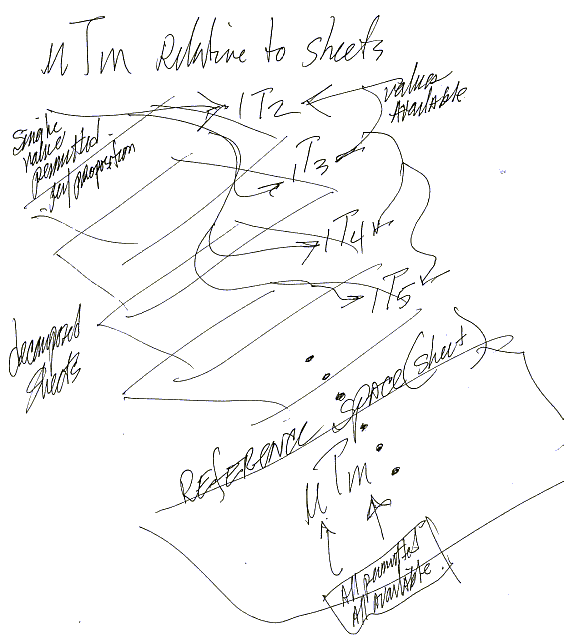 nTm Relative to sheets
values
Available
1T2
single
value
permitted
per proposition
1T3
1T4
1T5
decomposed
sheets
REFERENCE SPACE (sheet)
nTm
All permitted
All available